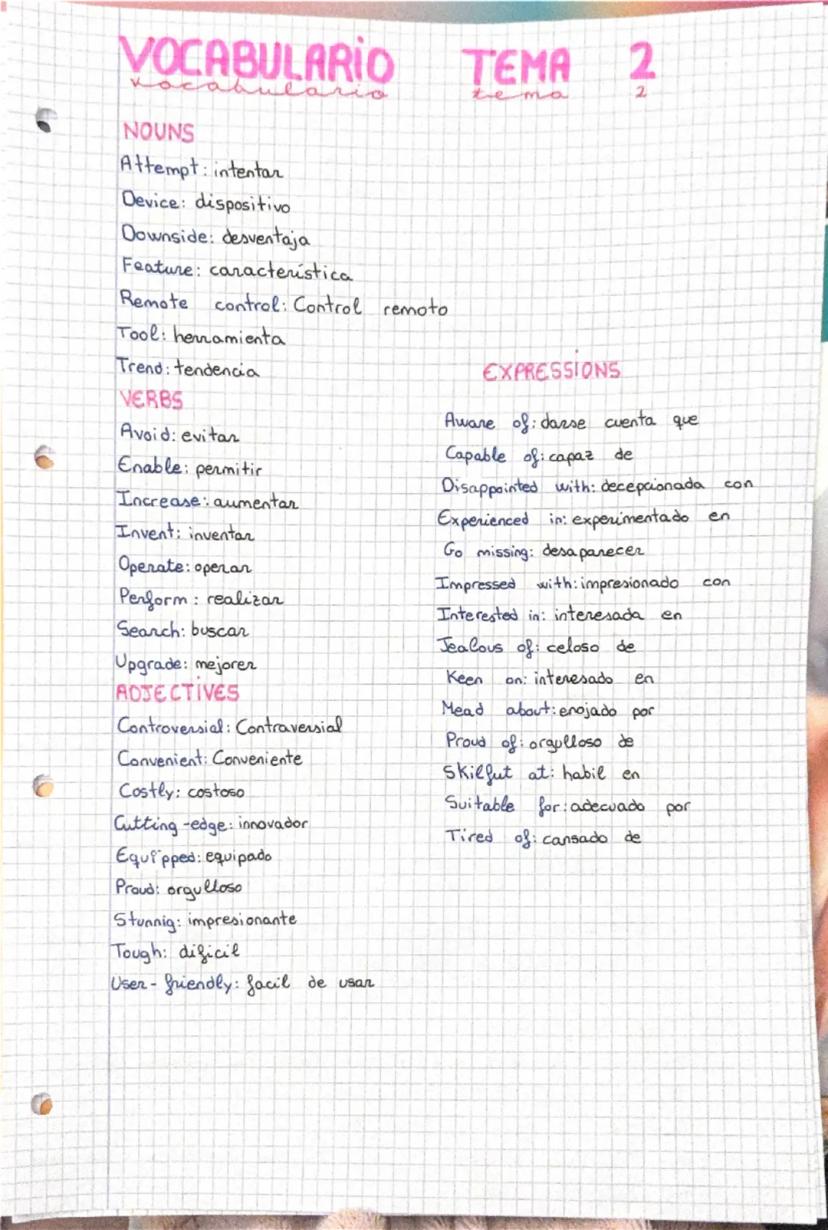 VOCABULARIO TEMA 2
vocabulario tema 2
NOUNS
Attempt: intentar
Device: dispositivo
Downside: desventaja
Feature: característica
Remote control: Control remoto
Tool: herramienta
Trend: tendencia
VERBS
Avoid: evitar
Enable: permitir
Increase: aumentar
Invent: inventar
Operate: operar
Perform: realizar
Search: buscar
Upgrade: mejorer
ADJECTIVES
Controversial: Contraversial
Convenient: Conveniente
Costly: costoso
Cutting-edge: innovador
Equipped: equipado
Proud: orgulloso
Stunnig: impresionante
Tough: dificil
User-friendly: facil de usar
EXPRESSIONS
Aware of: darse cuenta que
Capable of: capaz de
Disappointed with: decepcionada con
Experienced in: experimentado en
Go missing: desaparecer
Impressed with: impresionado con
Interested in: interesada en
Jealous of: celoso de
Keen on: interesado en
Mead about: enojado por
Proud of: orgulloso de
Skilfut at: habil en
Suitable for: adecuado por
Tired of: cansado de